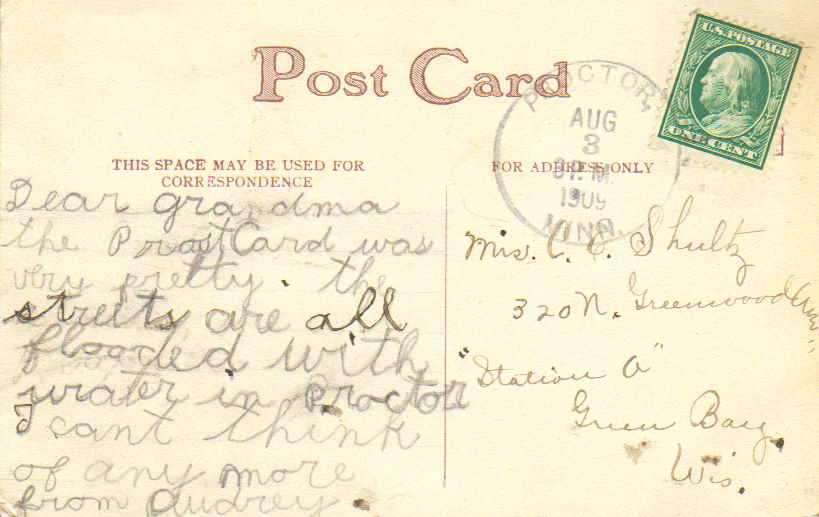 Post Card
U.S. POSTAGE
ONE CENT
PROCTOR,
AUG
3
M.
1909
MINN.
THIS SPACE MAY BE USED FOR
CORRESPONDENCE
FOR ADDRESS ONLY
Dear grandma
the ProstCard was
very pretty. the
streets are all
flooded with
water in Proctor
I cant think
of any more
from Audrey.
Mrs. C. E. Shultz
320 N. Greenwood Ave.,
"Station A"
Green Bay,
Wis.